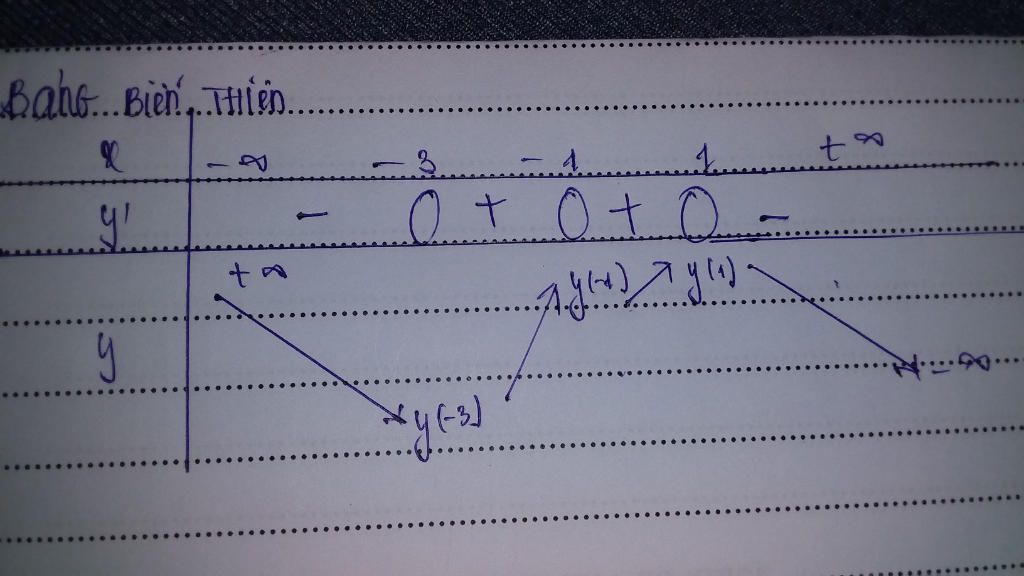 Bảng Biến Thiên
x -∞ -3 -1 1 +∞
y' - 0 + 0 + 0 -
+∞ y(-1) y(1)
y -∞
y(-3)